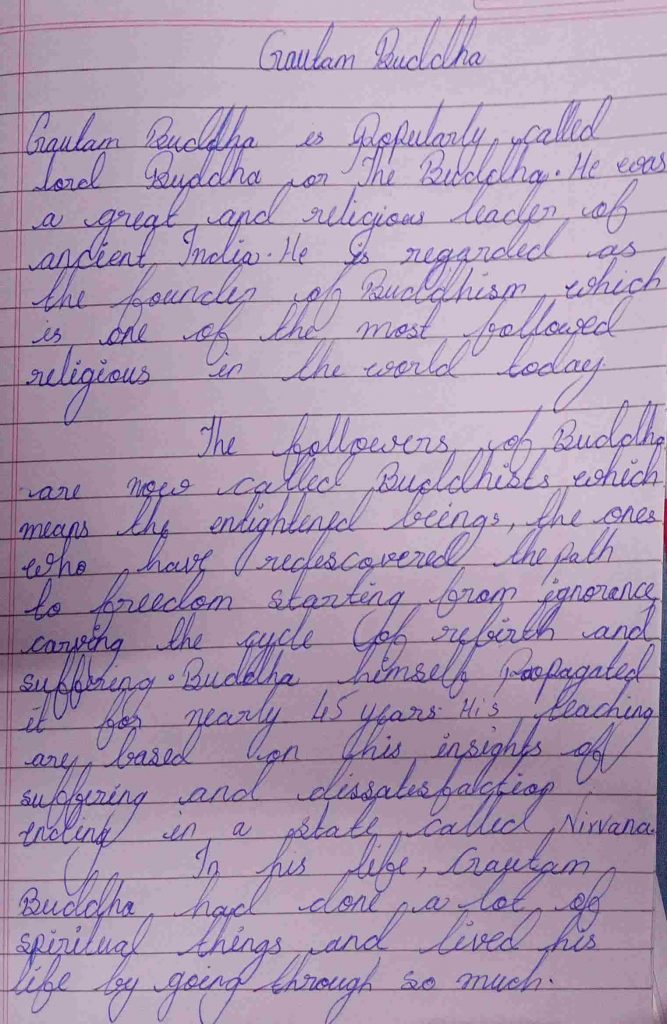 Gautam Buddha
Gautam Buddha is Popularly called
lord Buddha or The Buddha. He was
a great and religious leader of
ancient India. He is regarded as
the founder of Buddhism which
is one of the most followed
religious in the world today.
The followers of Buddha
are now called Buddhists which
means the enlightened beings, the ones
who have rediscovered the path
to freedom starting from ignorance
carving the cycle of rebirth and
suffering. Buddha himself Propagated
it for nearly 45 years. His teaching
are based on his insights of
suffering and dissatisfaction
ending in a state called Nirvana.
In his life, Gautam
Buddha had done a lot of
spiritual things and lived his
life by going through so much.